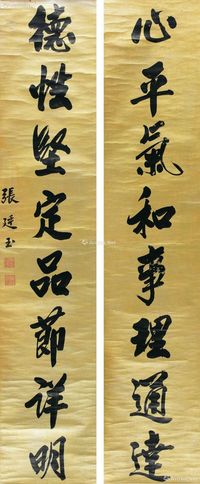 心平氣和事理通達
德性堅定品節详明
張廷玉